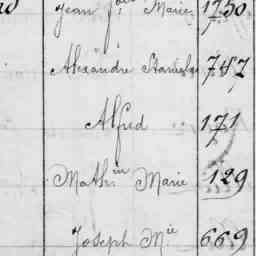 Jean Fois Marie 1730
Alexandre Stanislas 747
Alfred 171
Mathin Marie 129
Joseph Mie 669